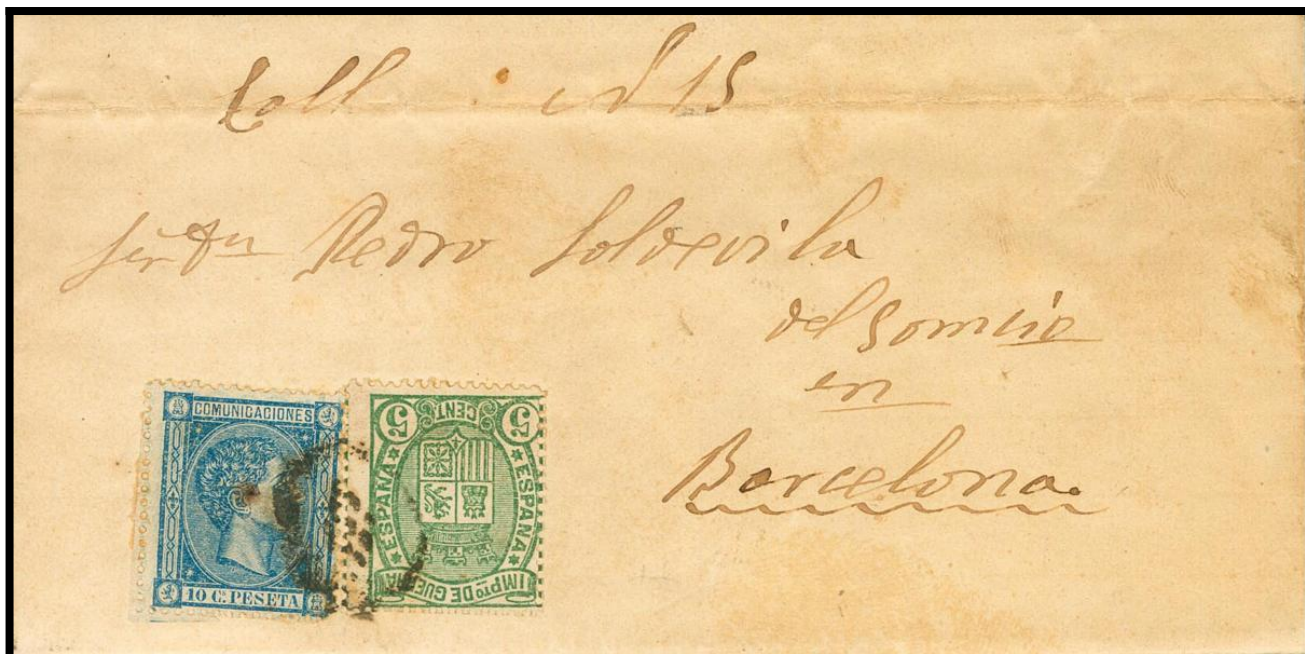 Call nº 15
Señr Dn Pedro Soldevila
del Comercio
en
Barcelona.
COMUNICACIONES
10 C. PESETA
5 CENT. 5
ESPAÑA ESPAÑA
IMPTO DE GUERRA